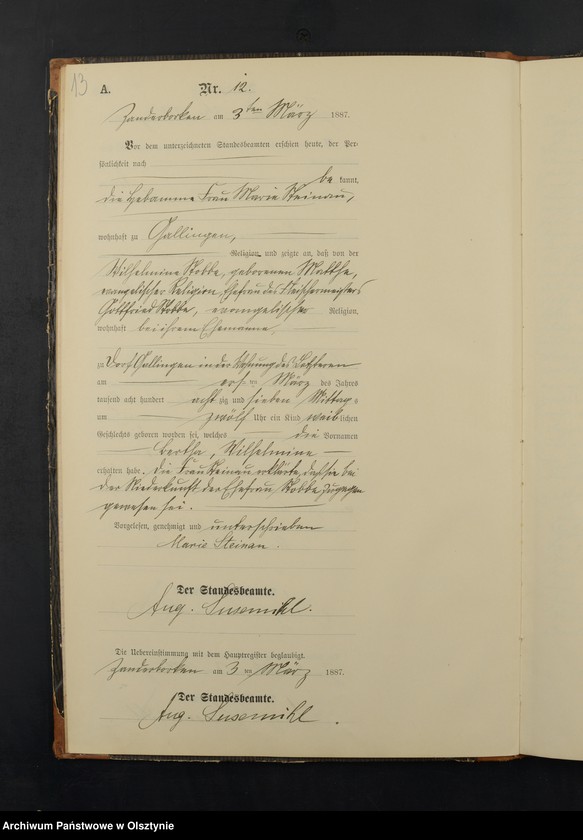 13
A. Nr. 12.
Zanderborken am 3ten März 1887.
Vor dem unterzeichneten Standesbeamten erschien heute, der Per-
sönlichkeit nach
be kannt,
die Hebamme Frau Marie Steinau,
wohnhaft zu Gallingen,
Religion, und zeigte an, daß von der
Wilhelmine Stobbe, geborenen
evangelischer Religion, Ehefrau des Fleischermeisters
Gottfried Stobbe, evangelischer Religion,
wohnhaft bei ihrem Ehemanne,
zu Dorf Gallingen in der Wohnung des Letzteren
am ersten März des Jahres
tausend acht hundert acht zig und sieben Mittags
um zwölf Uhr ein Kind weib lichen
Geschlechts geboren worden sei, welches die Vornamen
Bertha, Wilhelmine
erhalten habe. Die Frau Steinau erklärte, daß sie bei
der Niederkunft der Ehefrau Stobbe zugegen
gewesen sei.
Vorgelesen, genehmigt und unterschrieben
Marie Steinau.
Der Standesbeamte.
Aug. Susemihl.
Die Uebereinstimmung mit dem Hauptregister beglaubigt.
Zanderborken am 3 ten März 1887.
Der Standesbeamte.
Aug. Susemihl.
Archiwum Państwowe w Olsztynie